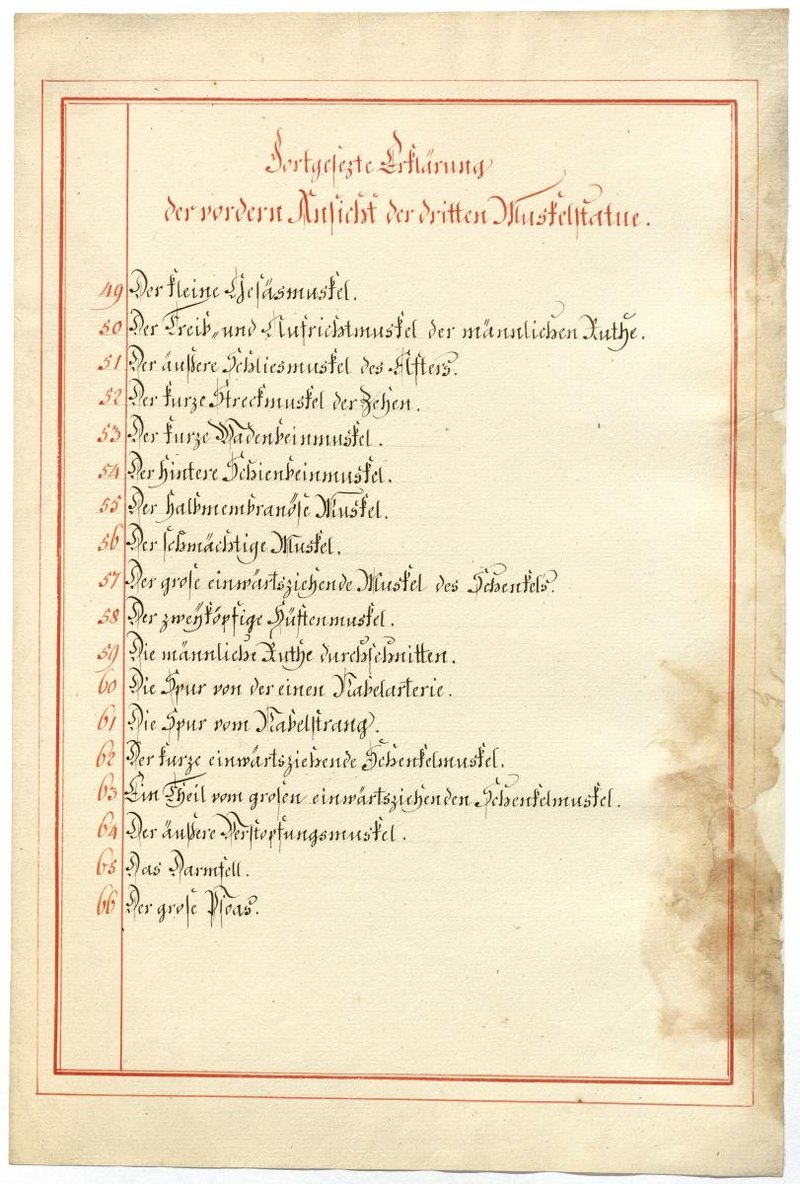 Fortgesezte Erklärung
der vordern Ansicht der dritten Muskelstatue.
49 Der kleine Gesäsmuskel.
50 Der Treib- und Aufrichtmuskel der männlichen Ruthe.
51 Der äußere Schliesmuskel des Afters.
52 Der kurze Streckmuskel der Zehen.
53 Der kurze Wadenbeinmuskel.
54 Der hintere Schienbeinmuskel.
55 Der halbmembranöse Muskel.
56 Der schmächtige Muskel.
57 Der grose einwärtsziehende Muskel des Schenkels.
58 Der zweyköpfige Hüftenmuskel.
59 Die männliche Ruthe durchschnitten.
60 Die Spur von der einen Nabelarterie.
61 Die Spur vom Nabelstrang.
62 Der kurze einwärtsziehende Schenkelmuskel.
63 Ein Theil vom grosen einwärtsziehenden Schenkelmuskel.
64 Der äußere Verstopfungsmuskel.
65 Das Darmfell.
66 Der grose Psoas.